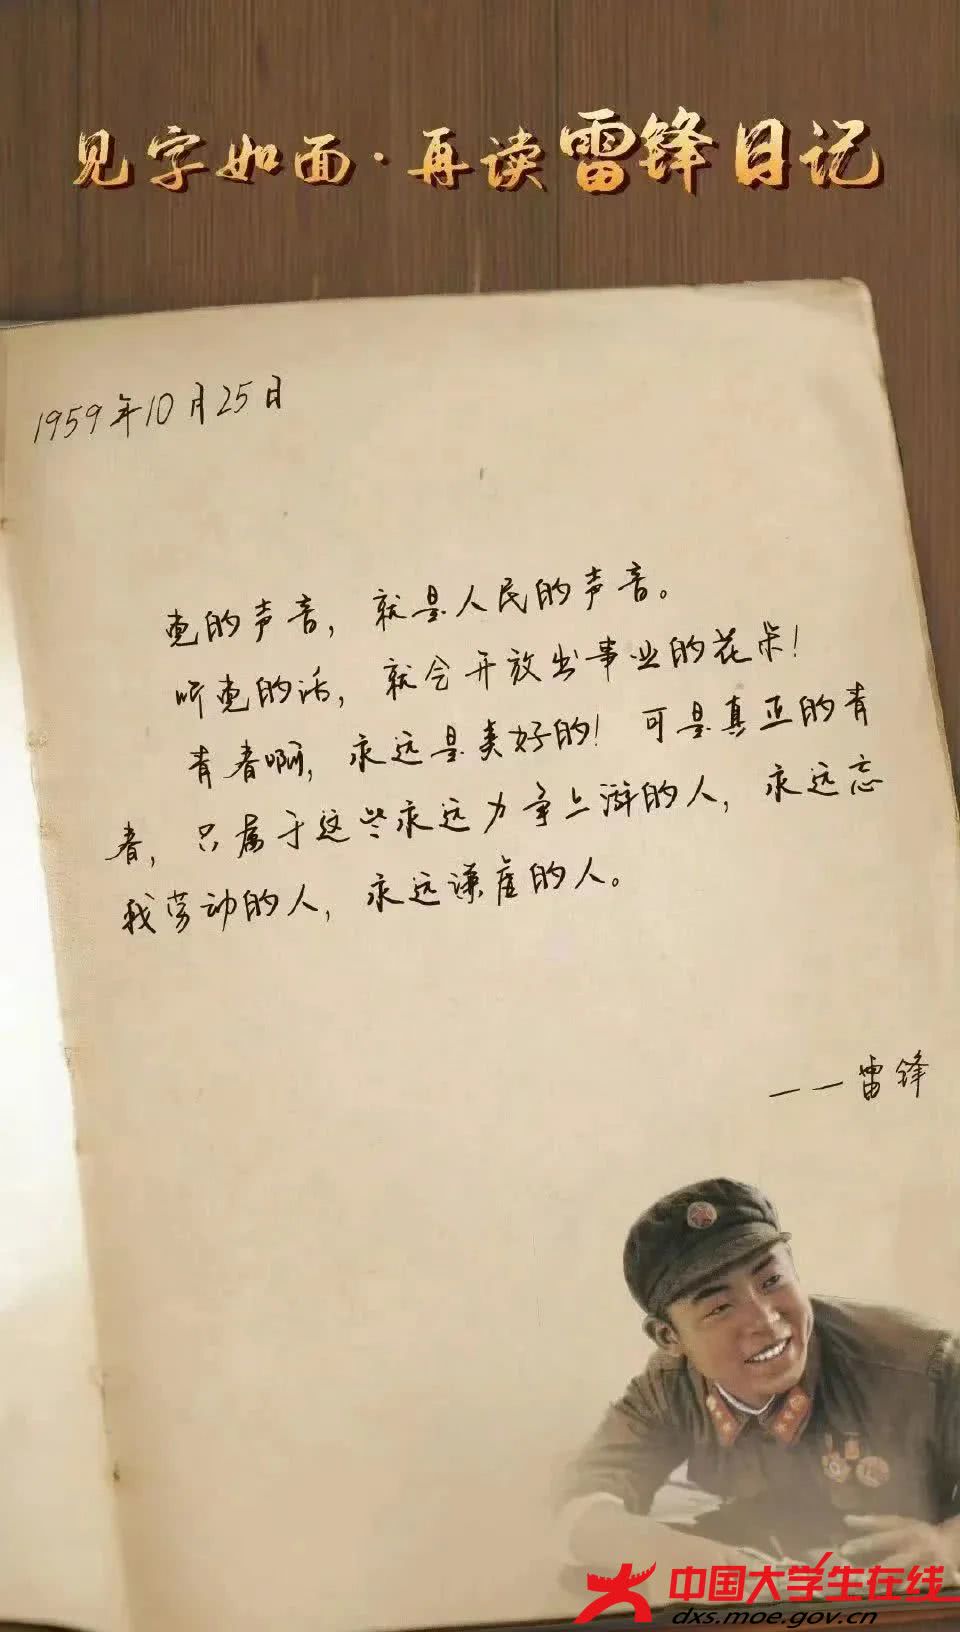 见字如面·再读雷锋日记
1959年10月25日
党的声音，就是人民的声音。
听党的话，就会开放出事业的花朵！
青春啊，永远是美好的！可是真正的青
春，只属于这些永远力争上游的人，永远忘
我劳动的人，永远谦虚的人。
——雷锋
中国大学生在线
dxs.moe.gov.cn